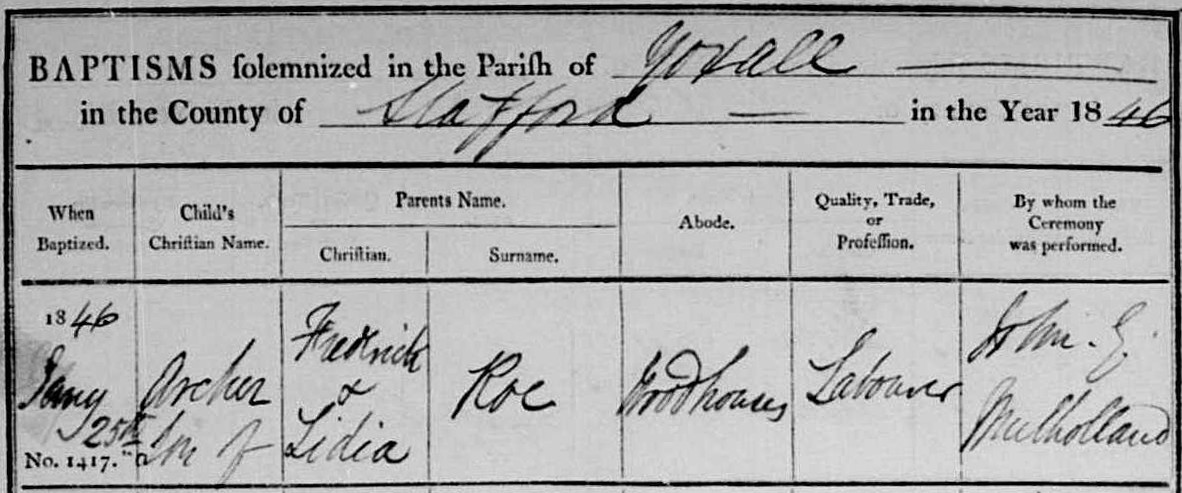 BAPTISMS solemnized in the Parish of Yoxall
in the County of Stafford in the Year 1846
When Baptized.
Child's Christian Name.
Parents Name.
Christian.
Surname.
Abode.
Quality, Trade, or Profession.
By whom the Ceremony was performed.
1846
Jany
25th
No. 1417.
Archer
Son of
Fredrick
&
Lidia
Roe
Woodhouses
Labourer
John. G.
Mulholland